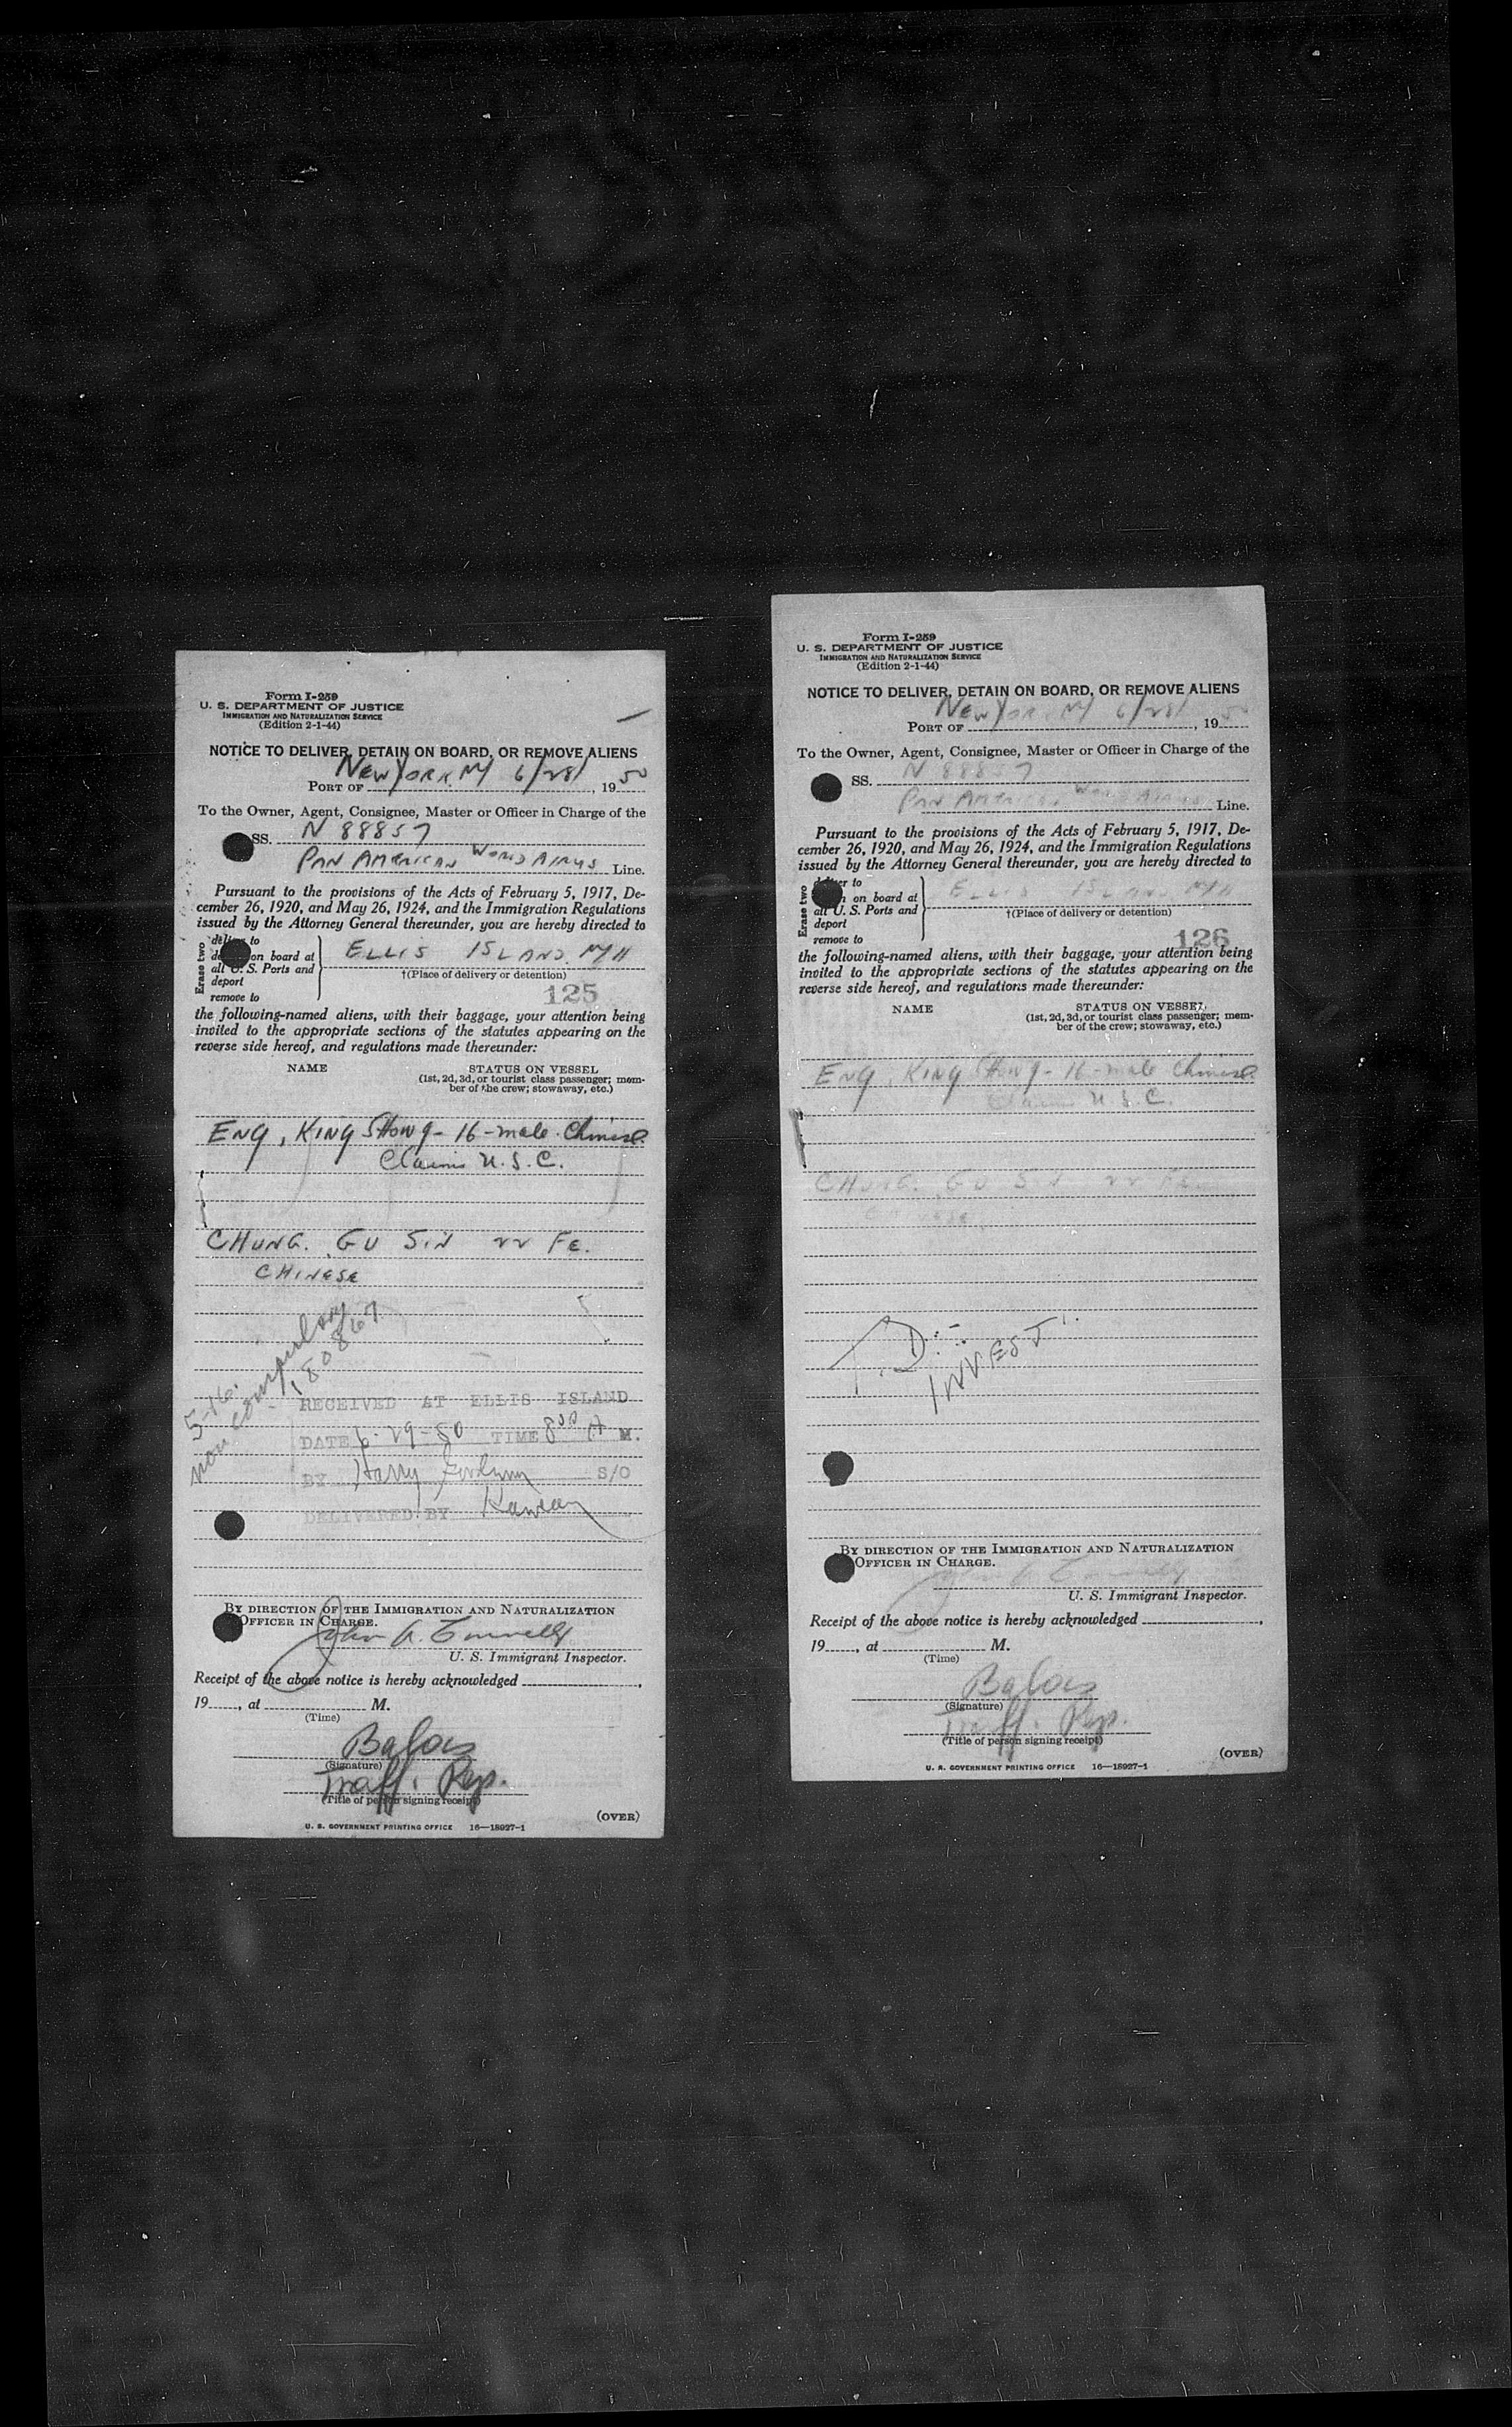 Form I-259
U. S. DEPARTMENT OF JUSTICE
IMMIGRATION AND NATURALIZATION SERVICE
(Edition 2-1-44)
NOTICE TO DELIVER, DETAIN ON BOARD, OR REMOVE ALIENS
NEW YORK NY 6/28/
PORT OF , 19 50
To the Owner, Agent, Consignee, Master or Officer in Charge of the
SS. N 88857
PAN AMERICAN WORLD AIRWYS Line.
Pursuant to the provisions of the Acts of February 5, 1917, De-
cember 26, 1920, and May 26, 1924, and the Immigration Regulations
issued by the Attorney General thereunder, you are hereby directed to
Erase two
to
on board at
all U. S. Ports and
deport
remove to
ELLIS ISLAND NYH
†(Place of delivery or detention)
125
the following-named aliens, with their baggage, your attention being
invited to the appropriate sections of the statutes appearing on the
reverse side hereof, and regulations made thereunder:
NAME STATUS ON VESSEL
(1st, 2d, 3d, or tourist class passenger; mem-
ber of the crew; stowaway, etc.)
ENG, KING SHONG - 16 - male Chinese
Claims U.S.C.
CHUNG. GU SIN 22 FE.
CHINESE
5-16.
non compulsory
180867
RECEIVED AT ELLIS ISLAND
DATE 6-29-50 TIME 8 30 A M.
BY Harry S/O
DELIVERED BY
BY DIRECTION OF THE IMMIGRATION AND NATURALIZATION
OFFICER IN CHARGE.
John A. Connelly
U. S. Immigrant Inspector.
Receipt of the above notice is hereby acknowledged ,
19 , at M.
(Time)
(Signature)
Traff. Rep.
(Title of person signing receipt)
(OVER)
U. S. GOVERNMENT PRINTING OFFICE 16—18927-1
Form I-259
U. S. DEPARTMENT OF JUSTICE
IMMIGRATION AND NATURALIZATION SERVICE
(Edition 2-1-44)
NOTICE TO DELIVER, DETAIN ON BOARD, OR REMOVE ALIENS
NEW YORK NY 6/28/
PORT OF , 19 50
To the Owner, Agent, Consignee, Master or Officer in Charge of the
SS. N 88857
PAN AMERICAN WORLD AIRWYS Line.
Pursuant to the provisions of the Acts of February 5, 1917, De-
cember 26, 1920, and May 26, 1924, and the Immigration Regulations
issued by the Attorney General thereunder, you are hereby directed to
Erase two
to
on board at
all U. S. Ports and
deport
remove to
ELLIS ISLAND NYH
†(Place of delivery or detention)
126
the following-named aliens, with their baggage, your attention being
invited to the appropriate sections of the statutes appearing on the
reverse side hereof, and regulations made thereunder:
NAME STATUS ON VESSEL
(1st, 2d, 3d, or tourist class passenger; mem-
ber of the crew; stowaway, etc.)
ENG, KING SHONG - 16 - male Chinese
Claims U.S.C.
CHUNG. GU SIN 22 FE.
CHINESE
INVEST.
BY DIRECTION OF THE IMMIGRATION AND NATURALIZATION
OFFICER IN CHARGE.
John A. Connelly
U. S. Immigrant Inspector.
Receipt of the above notice is hereby acknowledged ,
19 , at M.
(Time)
(Signature)
Traff. Rep.
(Title of person signing receipt)
(OVER)
U. S. GOVERNMENT PRINTING OFFICE 16—18927-1